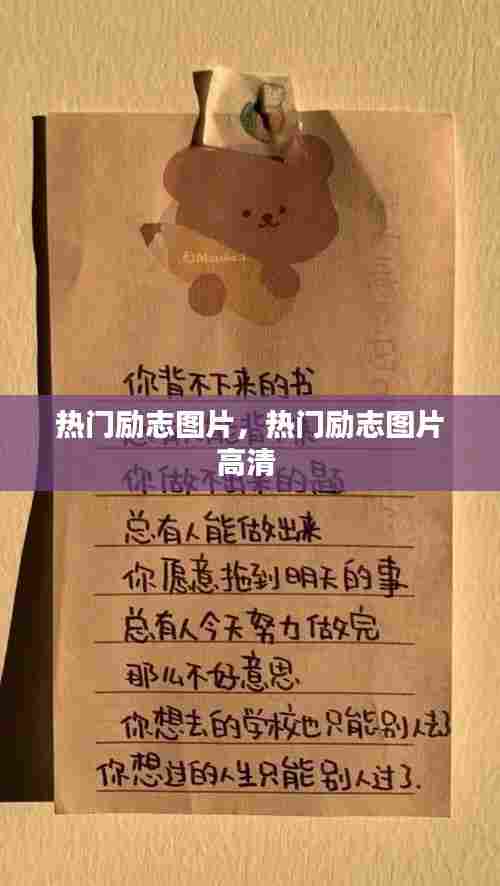 你背不下来的书
热门励志图片，热门励志图片
高清
你做不出来的题
总有人能做出来
你愿意拖到明天的事
总有人今天努力做完
那么不好意思
你想去的学校也只能别人去了
你想过的人生只能别人过了.